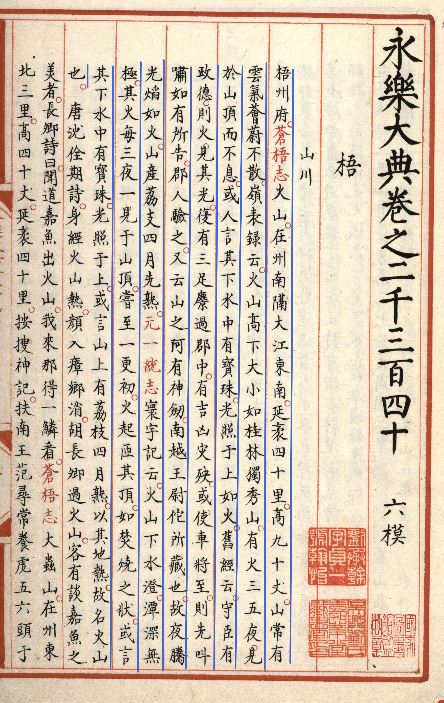 永樂大典卷之二千三百四十 六模
梧
山川
梧州府蒼梧志火山在州南隔大江東南延袤四十里高九十丈山常有
雲氣薈蔚不散嶺表錄云火山高下大小如桂林獨秀山有火三五夜見
於山頂而不息或人言其下水中有寳珠光照于上如火舊經云守臣有
政德則火見其光復有三足麞過郡中有吉凶灾殃或使車將至則先呌
嘯如有所告郡人驗之又云山之阿有神劒南越王尉佗所藏也故夜騰
光焰如火山産荔支四月先熟元一統志寰宇記云火山下水澄潭深無
極其火每三夜一見于山頂嘗至一更初火起匝其頂如焚燒之狀或言
其下水中有寳珠光照于上或言山上有荔枝四月熟以其地熱故名火山
也唐沈佺期詩身經火山熱顔入瘴鄉消胡長卿過火山客有談嘉魚之
美者長卿詩曰聞道嘉魚出火山我來那得一鱗看蒼梧志大蟲山在州東
北三里高四十丈延袤四十里按搜神記扶南王范尋常養虎五六頭于